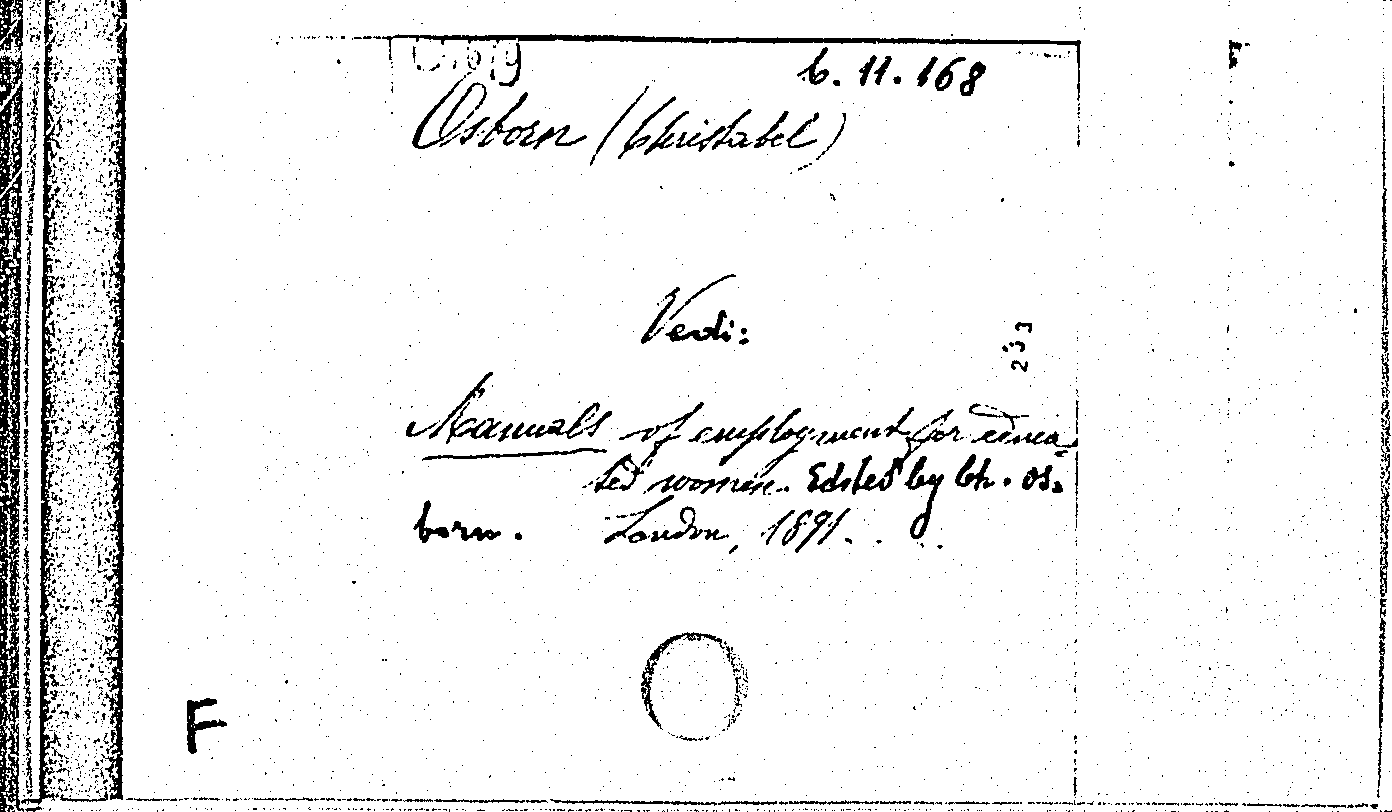 6. 11. 168
Osborn (Christabel)
Vedi:
233
Manuals of employment for educa-
ted women. Edited by Ch. Os-
born. London, 1891.
F